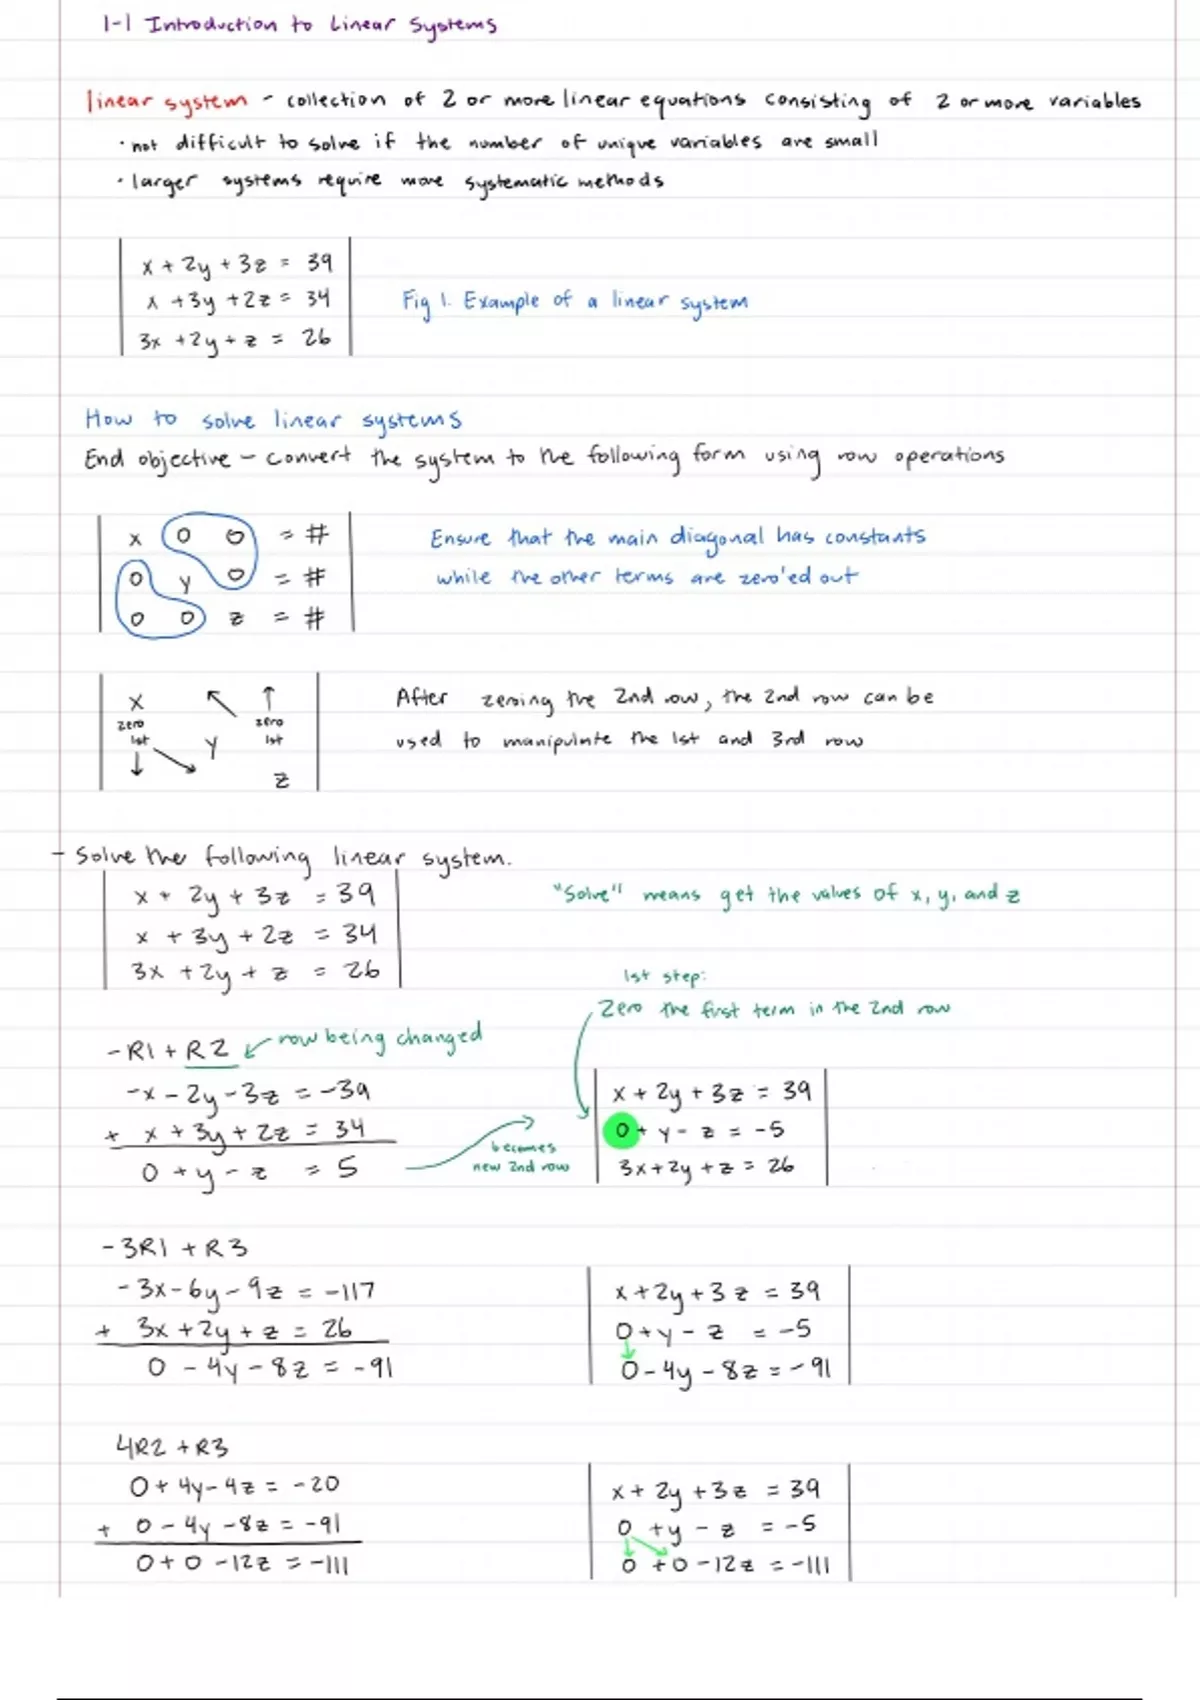 1-1 Introduction to Linear Systems
linear system - collection of 2 or more linear equations consisting of 2 or more variables
· not difficult to solve if the number of unique variables are small
· larger systems require more systematic methods
x + 2y + 3z = 39
x + 3y + 2z = 34
3x + 2y + z = 26
Fig 1. Example of a linear system
How to solve linear systems
End objective - convert the system to the following form using row operations
x 0 0 = #
0 y 0 = #
0 0 z = #
Ensure that the main diagonal has constants
while the other terms are zero'ed out
x ↖ ↑
zero 1st ↓ ↘ y zero 1st
z
After zeroing the 2nd row, the 2nd row can be
used to manipulate the 1st and 3rd row
- Solve the following linear system.
x + 2y + 3z = 39
x + 3y + 2z = 34
3x + 2y + z = 26
"Solve" means get the values of x, y, and z
1st step:
Zero the first term in the 2nd row
-R1 + R2 ← row being changed
-x - 2y - 3z = -39
+ x + 3y + 2z = 34
0 + y - z = 5
becomes
new 2nd row
x + 2y + 3z = 39
0 + y - z = -5
3x + 2y + z = 26
-3R1 + R3
-3x - 6y - 9z = -117
+ 3x + 2y + z = 26
0 - 4y - 8z = -91
x + 2y + 3z = 39
0 + y - z = -5
0 - 4y - 8z = -91
4R2 + R3
0 + 4y - 4z = -20
+ 0 - 4y - 8z = -91
0 + 0 - 12z = -111
x + 2y + 3z = 39
0 + y - z = -5
0 + 0 - 12z = -111